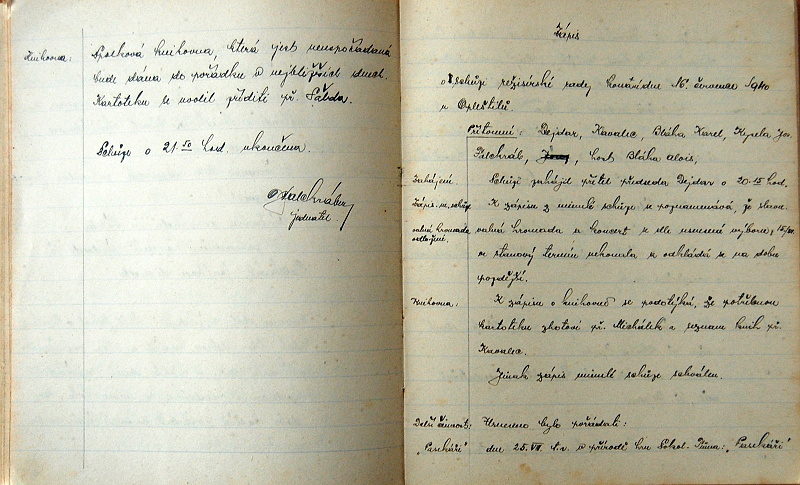 Knihovna:
Spolková knihovna, která jest neuspořádaná
bude dána do pořádku v nejbližších dnech.
Kartoteku se uvolil zříditi př. Sábda.
Schůze o 21.50 hod. ukončena.
jednatel.
Zápis
o schůzi režisérské rady konávidne 16. července 1940
u Oplestilů
Přítomni: Dejdar, Kavalec, Bláha Karel, Kysela Jos.
Palchráb, host Bláha Alois,
Zahájení. Schůzi zahájil přítel předseda Dejdar o 20.15 hod.
Zápis m. schůze K zápisu z minulé schůze se poznamenává, že slavn.
valná hromada odložení. valná hromada a koncert se dle usnesení výboru z 15/VII.
ve stanový termín nekonala a odkládá se na dobu
pozdější.
Knihovna: K zápisu o knihovně se podotýká, že potřebnou
kartoteku zhotoví př. Michálek a seznam knih př.
Kavalec.
Jinak zápis minulé schůze schválen.
Další činnost: Usneseno bylo pořádati:
„Paschaři" dne 25. VIII. t.r. v přírodě hru Sokol-Tůma: „Paschaři"